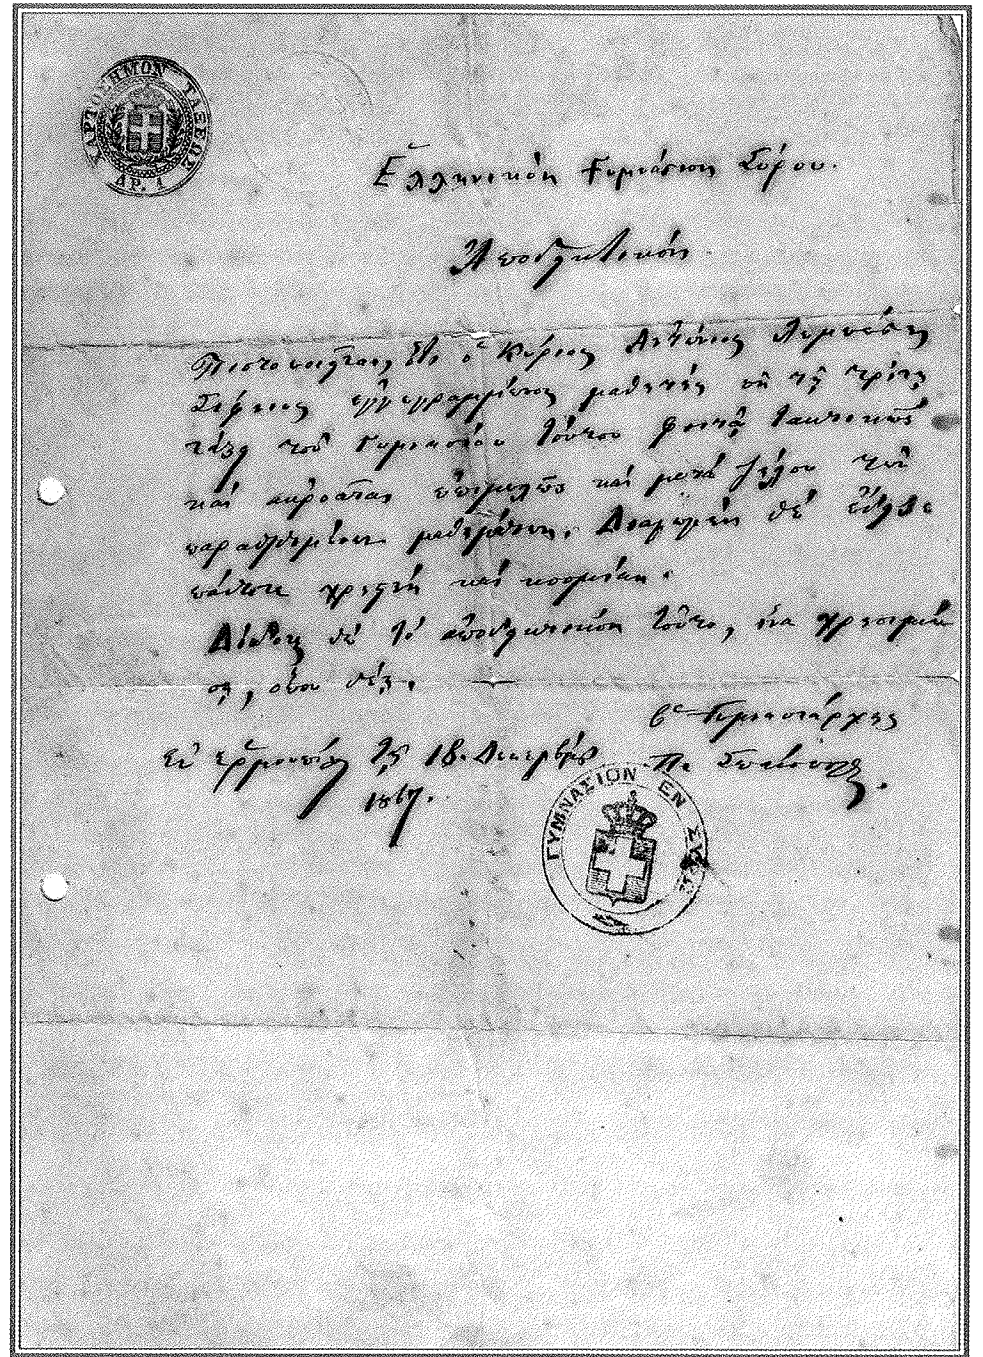 ΧΑΡΤΟΣΗΜΟΝ ΤΑΞΕΩΣ
ΔΡ. 1
Ἑλληνικὸν Γυμνάσιον Σύρου.
Ἀποδεικτικόν
Πιστοποιεῖται, ὅτι ὁ Κύριος Ἀντώνιος
Σίφνιος ἐγγεγραμμένος μαθητής ἐν τῇ τρίτῃ
τάξει τοῦ Γυμνασίου τούτου φοιτᾷ τακτικῶς
καὶ ἀκροᾶται ἐπιμελῶς καὶ μετὰ ζήλου τῶν
παραδιδομένων μαθημάτων. Διαγωγὴν δὲ εἶχε
πάντοτε χρηστὴν καὶ κοσμίαν.
Δίδοται δὲ τὸ ἀποδεικτικὸν τοῦτο, ἵνα χρησιμεύ
σῃ, ὅπου δέῃ.
Ἐν Ἑρμουπόλει τῇ 18. Δεκεμβρίου
1867.
ὁ Γυμνασιάρχης
Π.
ΓΥΜΝΑΣΙΟΝ ΕΝ